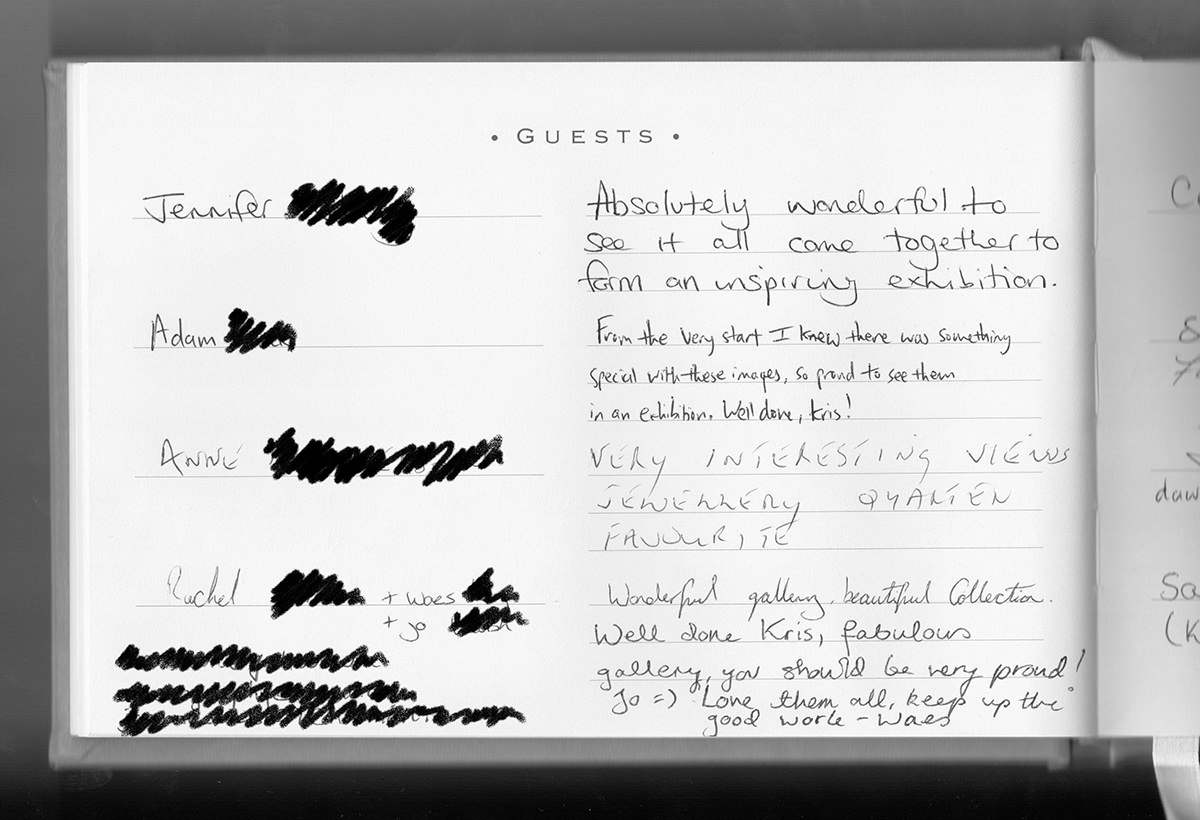 • GUESTS •
Jennifer
Absolutely wonderful to
see it all come together to
form an inspiring exhibition.
Adam
From the very start I knew there was something
special with these images, so proud to see them
in an exhibition. Well done, Kris!
ANNE
VERY INTERESTING VIEWS
JEWELLERY QUARTER
FAVOURITE
Rachel + Waes
+ Jo
Wonderful gallery, beautiful Collection.
Well done Kris, fabulous
gallery, you should be very proud!
Jo =) "Love them all, keep up the"
good work - Waes
daw
Sa
(K